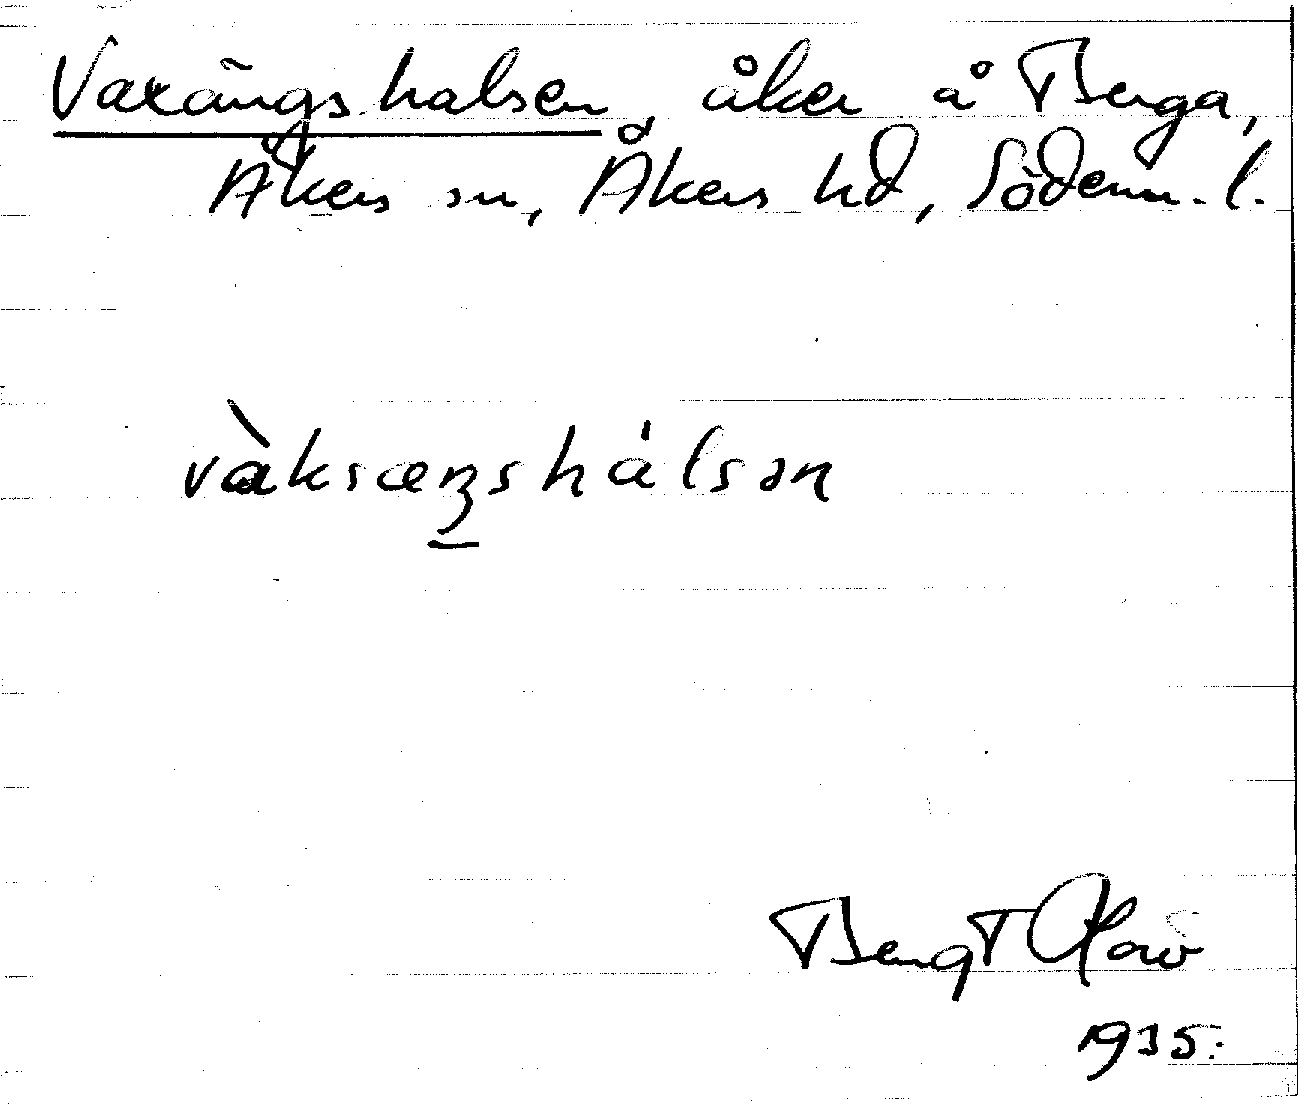 Vaxängshalsen åker å Berga,
Åkers sn, Åkers hd, Söderm. l.
vàksæŋshálsən
Bengt
1935.